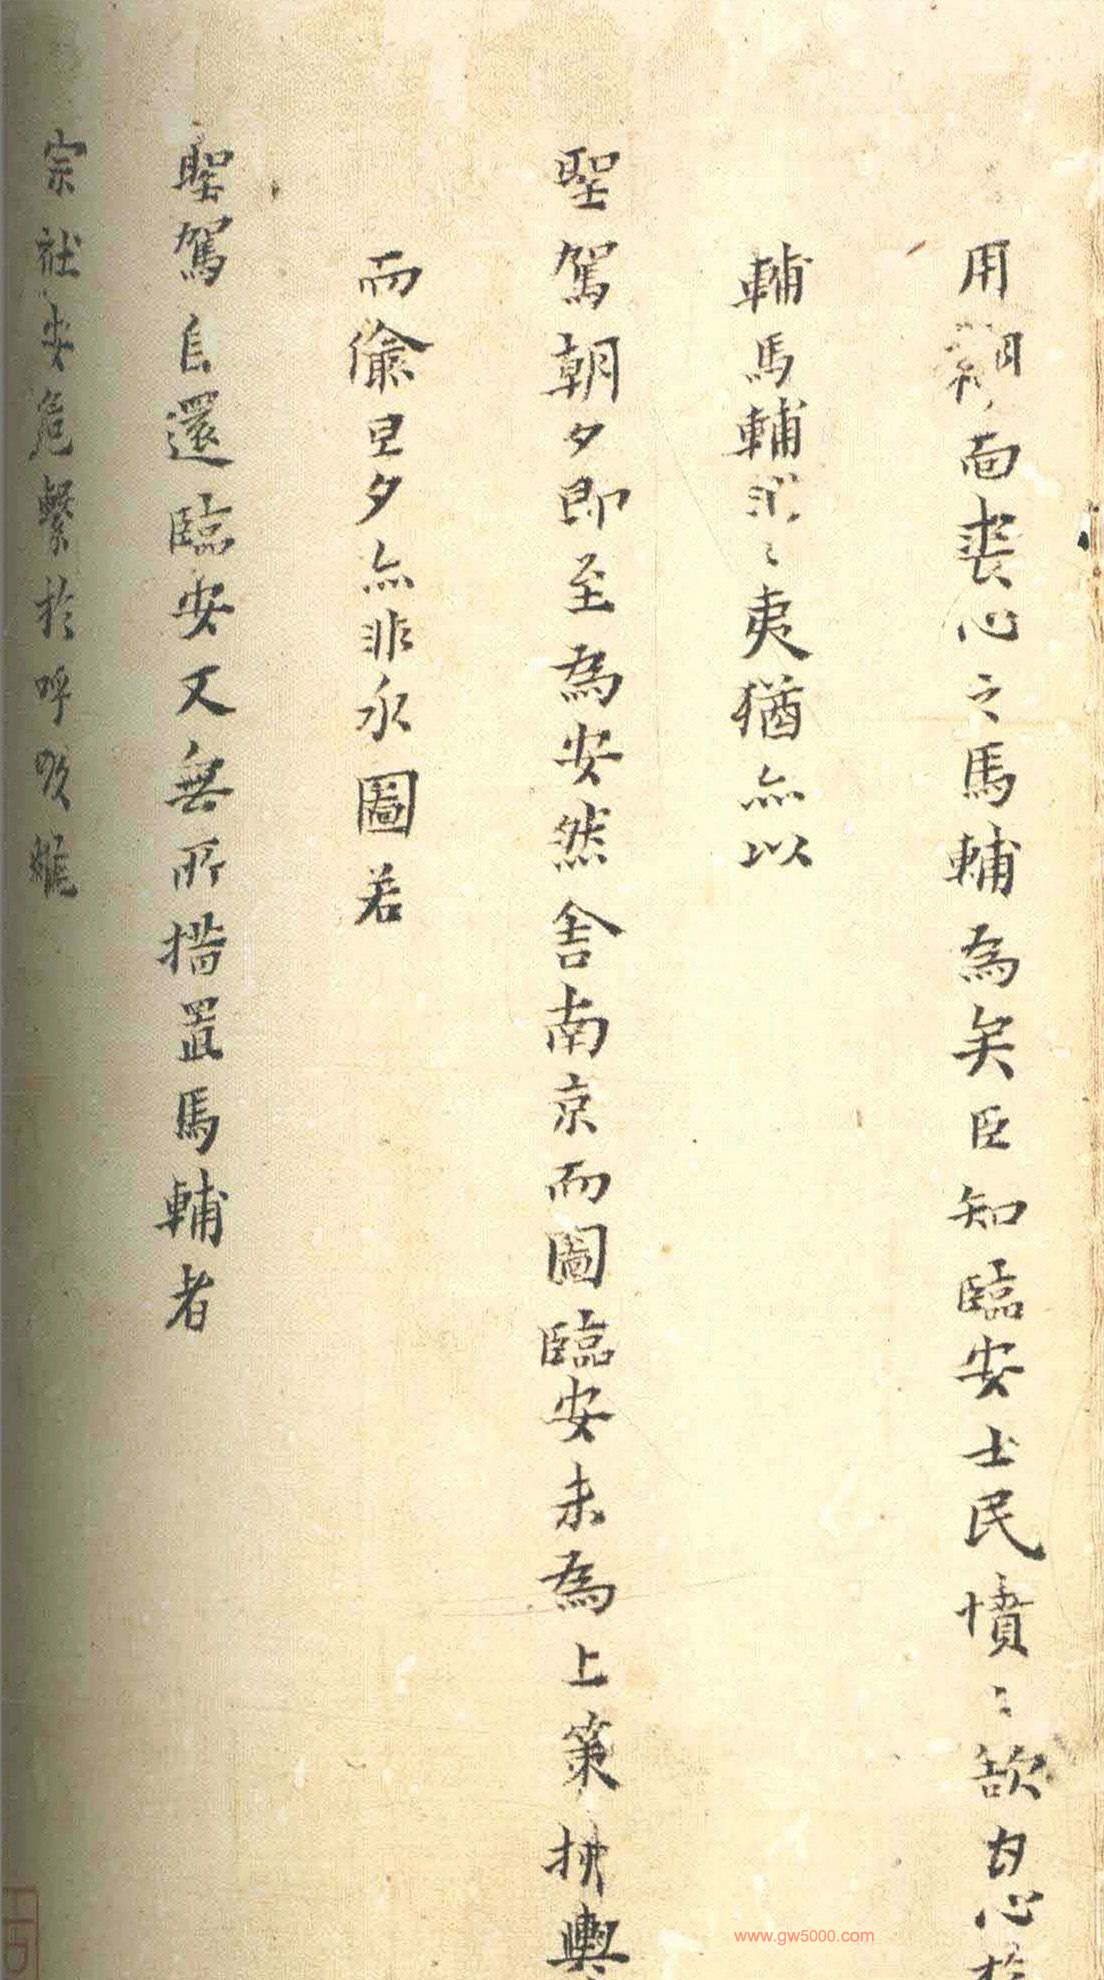 用靦面喪心之馬輔為矣臣知臨安士民憤〻欲甘心於
輔馬輔〻夷猶無以
聖駕朝夕即至為安然舍南京而圖臨安未為上策拼輿
而偷旦夕亦非永圖若
聖駕自還臨安又無所措置馬輔者
宗社安危繫於呼吸雖
www.gw5000.com